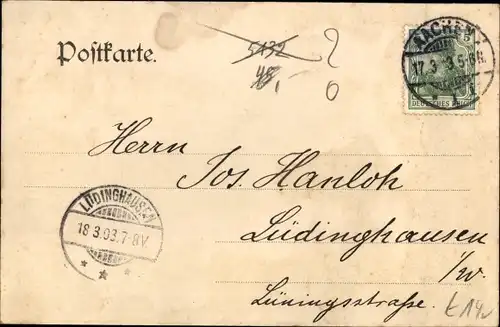 Postkarte.
5132
48,-
AACHEN
17.3 3.5-6N.
DEUTSCHES REICH
Herrn
Jos. Hanloh
Lüdinghausen
i/w.
Lüningsstraße.
LÜDINGHAUSEN
18.3.03.7-8V.
* * *